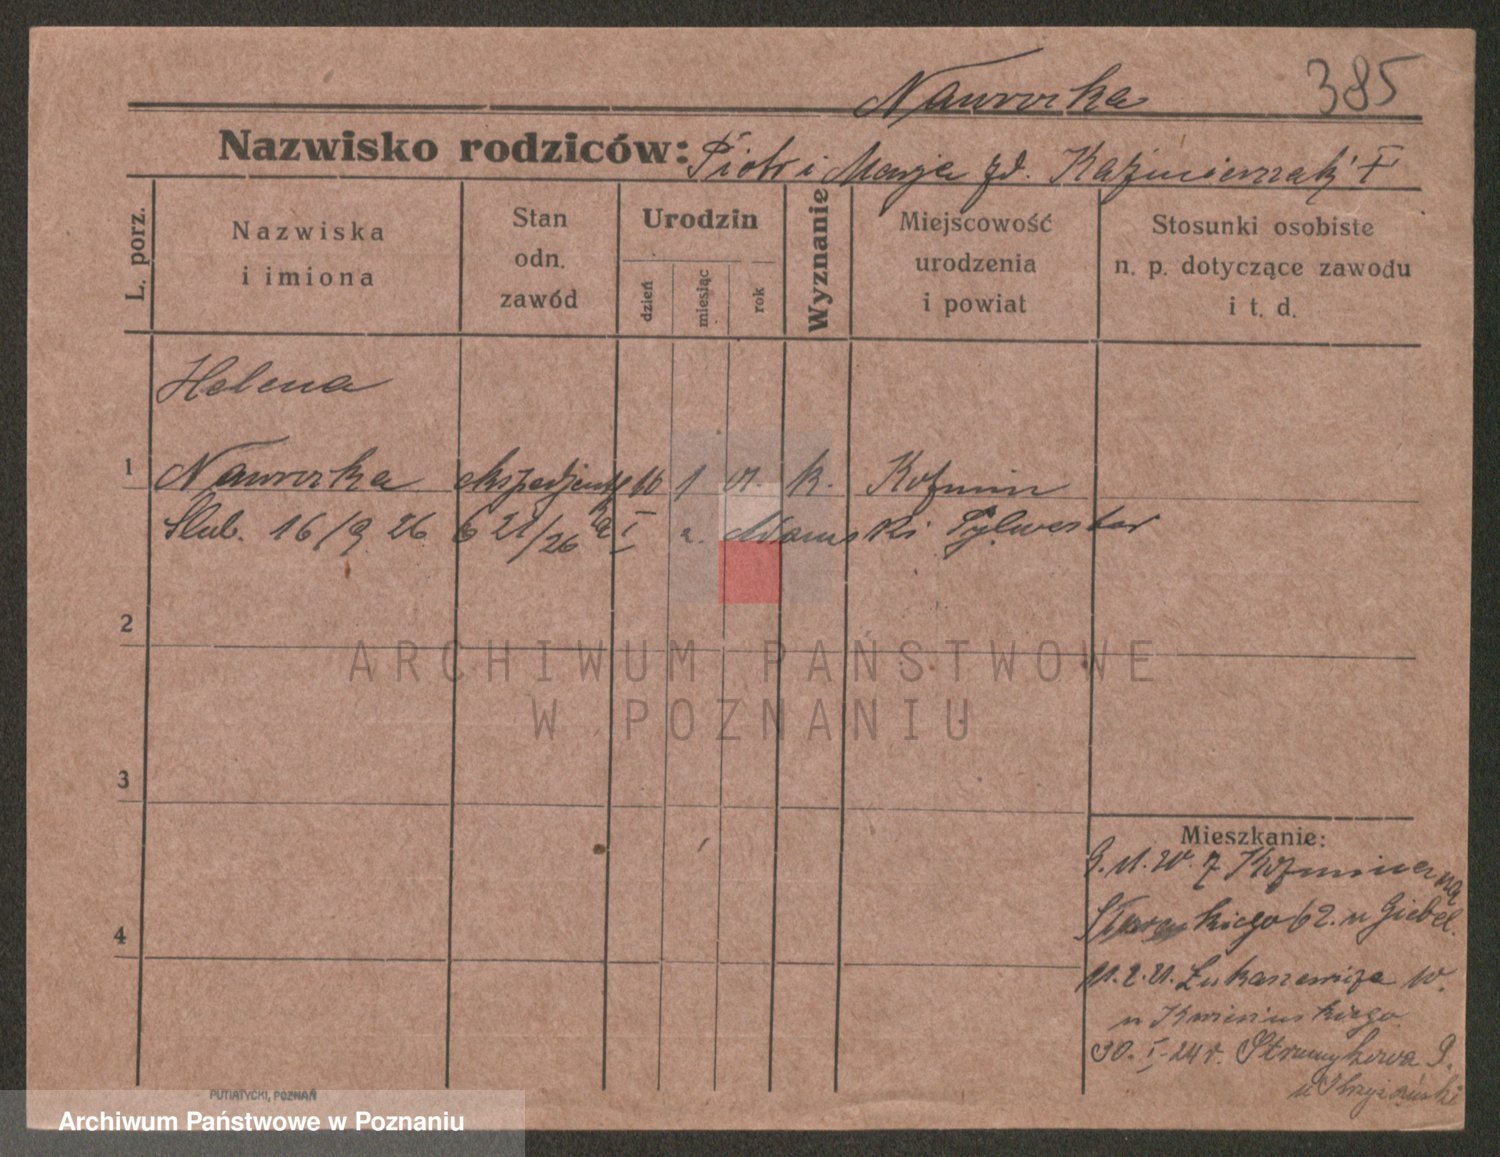 Nawrocka 385
Nazwisko rodziców: Piotr i Marja zd. Kaźmierczak
L. porz.
Nazwiska
i imiona
Stan
odn.
zawód
Urodzin
dzień
miesiąc
rok
Wyznanie
Miejscowość
urodzenia
i powiat
Stosunki osobiste
n. p. dotyczące zawodu
i t. d.
Helena
1 Nawrocka ekspedjentka 10 1 01. k. Koźmin
Slub. 16/9 26 6 21/26 I Adamski Sylwester
2
ARCHIWUM PAŃSTWOWE
W POZNANIU
3
Mieszkanie:
z Koźmina
62. u Giebel.
4
11.2.21. Łukaszewicza 10.
u Kwiecińskiego
30.I.24r. Strumykowa 9.
u Krzyżański
PUTIATYCKI, POZNAŃ
Archiwum Państwowe w Poznaniu